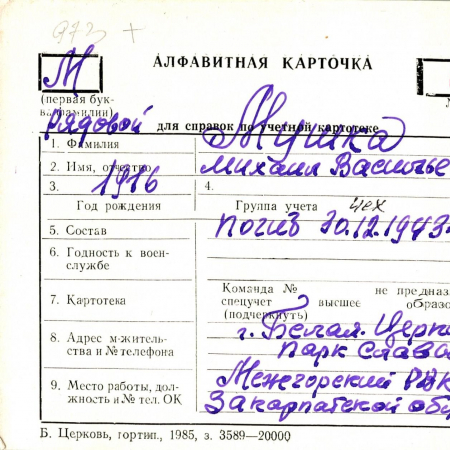 973 +
М
АЛФАВИТНАЯ КАРТОЧКА
(первая бук-
ва фамилии)
Рядовой
для справок по учетной картотеке
1. Фамилия Мушка
2. Имя, отчество Михаил Василье
3. 1916 4.
Год рождения Группа учета чех
5. Состав Погиб 30.12.1943
6. Годность к воен-
службе
7. Картотека
Команда № не предна
спецучет высшее образо
(подчеркнуть)
8. Адрес м-житель-
ства и № телефона
г. Белая Церк
Парк Слава
9. Место работы, дол-
жность и № тел. ОК
Межгорский РВК
Закарпатской обл
Б. Церковь, гортип., 1985, з. 3589—20000